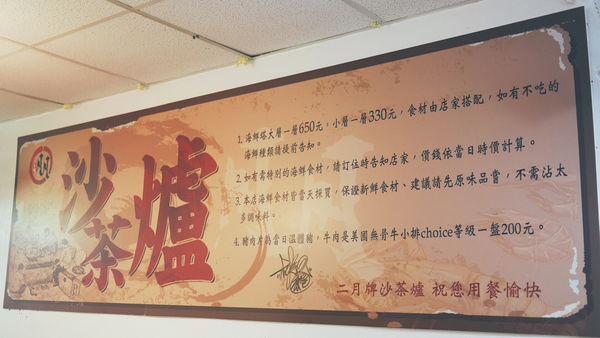 沙茶爐
1. 海鮮塔大層一層650元，小層一層330元，食材由店家搭配，如有不吃的
海鮮種類請提前告知。
2. 如有需特別的海鮮食材，請訂位時告知店家，價錢依當日時價計算。
3. 本店海鮮食材皆當天採買，保證新鮮食材、建議請先原味品嘗，不需沾太
多調味料。
4. 豬肉片為當日溫體豬，牛肉是美國無骨牛小排choice等級一盤200元。
二月牌沙茶爐 祝您用餐愉快